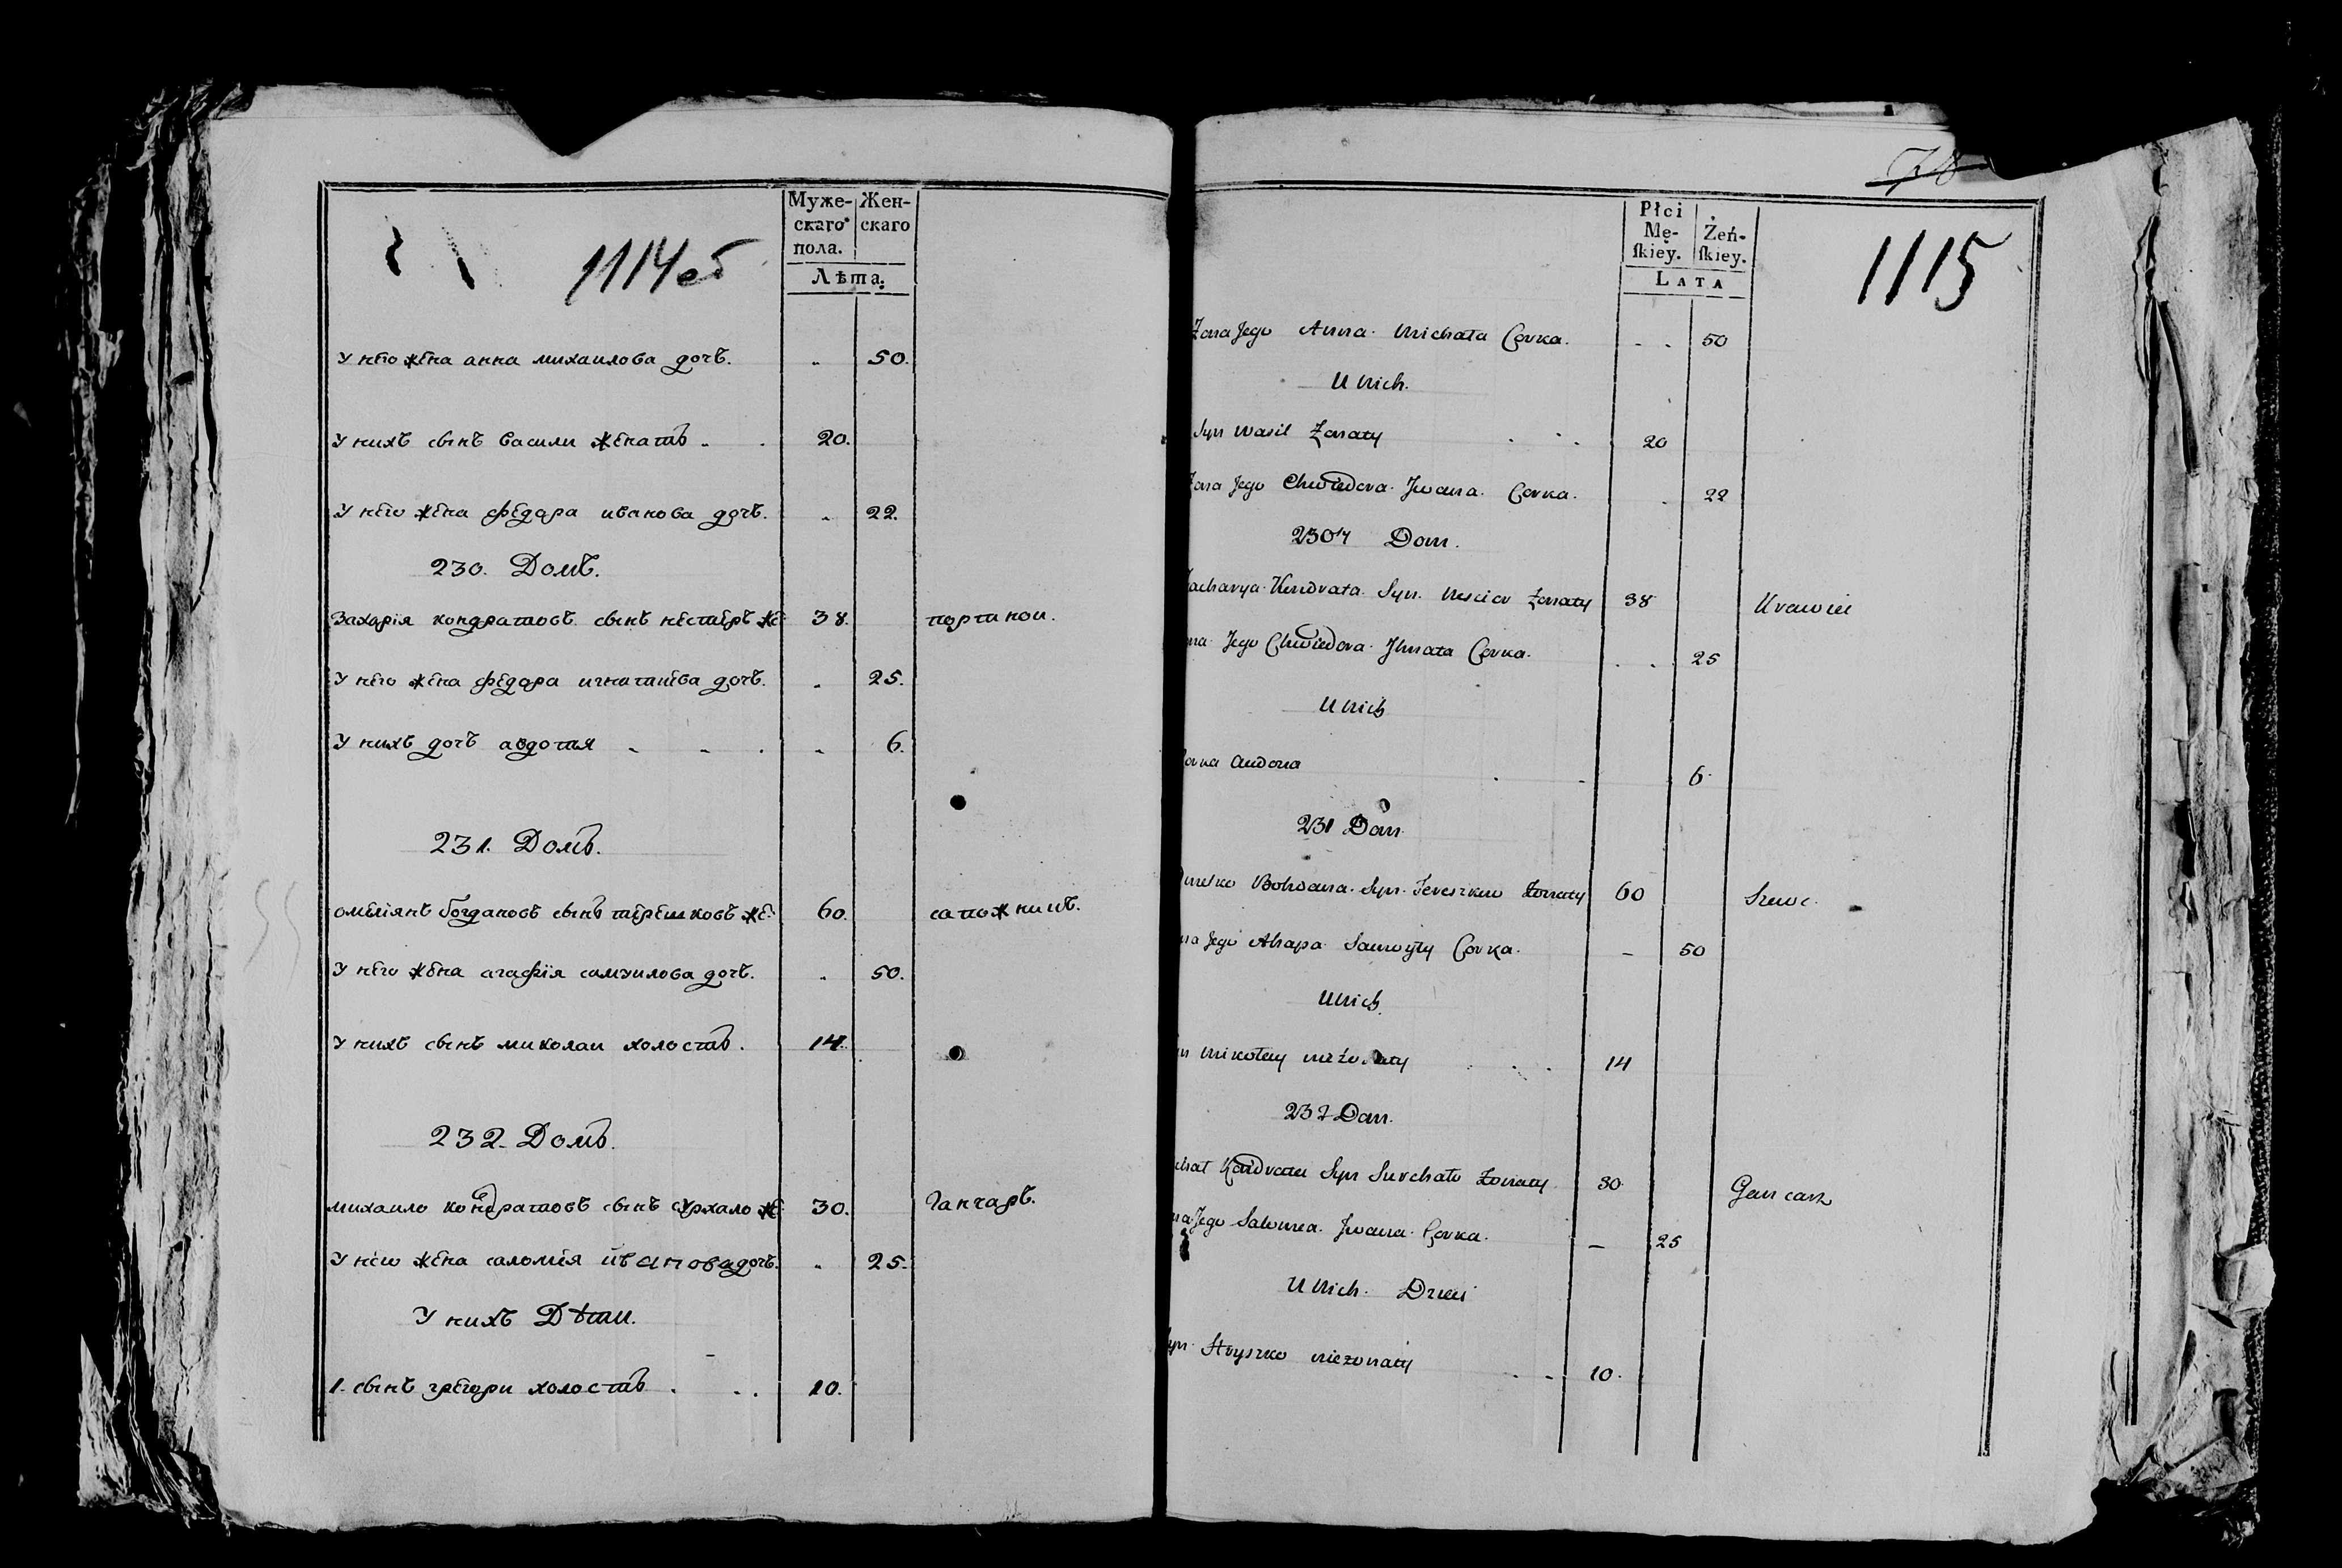 1114об
Муже- Жен-
скаго скаго
пола.
Лѣта.
У него жена анна михаилова дочъ. 50.
У нихъ сынъ василий женатъ 20.
У него жена федара иванова дочъ. 22.
230. Домъ.
Захарія кондратовъ сынъ нестеръ же: 38. портной.
У него жена федара игнатиева дочъ. 25.
У нихъ дочъ авдотия 6.
231. Домъ.
омелиянъ богдановъ сынъ терешковъ же: 60. сапожникъ.
У него жена агафія самуилова дочъ. 50.
У нихъ сынъ миколаи холостъ. 14.
232. Домъ.
михаило кондратовъ сынъ сурхало же: 30. Ганчаръ.
У него жена саломия ивановадочъ. 25.
У нихъ Дѣти.
1. сынъ грегори холостъ 10.
1115
Płci
Mę- Żeń-
ſkiey. ſkiey.
LATA
Żona Jego Anna Michała Corka. 50
U Nich.
Syn Wasil Żonaty 20
Żona Jego Chwiedora Jwana Corka. 22
230ty Dom.
Zacharya Kondrata Syn Żonaty 38 Krawiec
Jego Chwiedora Ihnata Corka. 25
U Nich
Corka Audona 6
231 Dom
Bohdana Syn Tereszkow Żonaty 60 Szewc
Jego Ahapa Samoyły Corka. 50
U Nich.
Mikołay nieżonaty 14
232 Dom.
Kondrata Syn Surchało Żonaty 30 Gancarz
Jego Salomea Jwana Corka. 25
U Nich Dzieci
Syn Hryszko nieżonaty 10